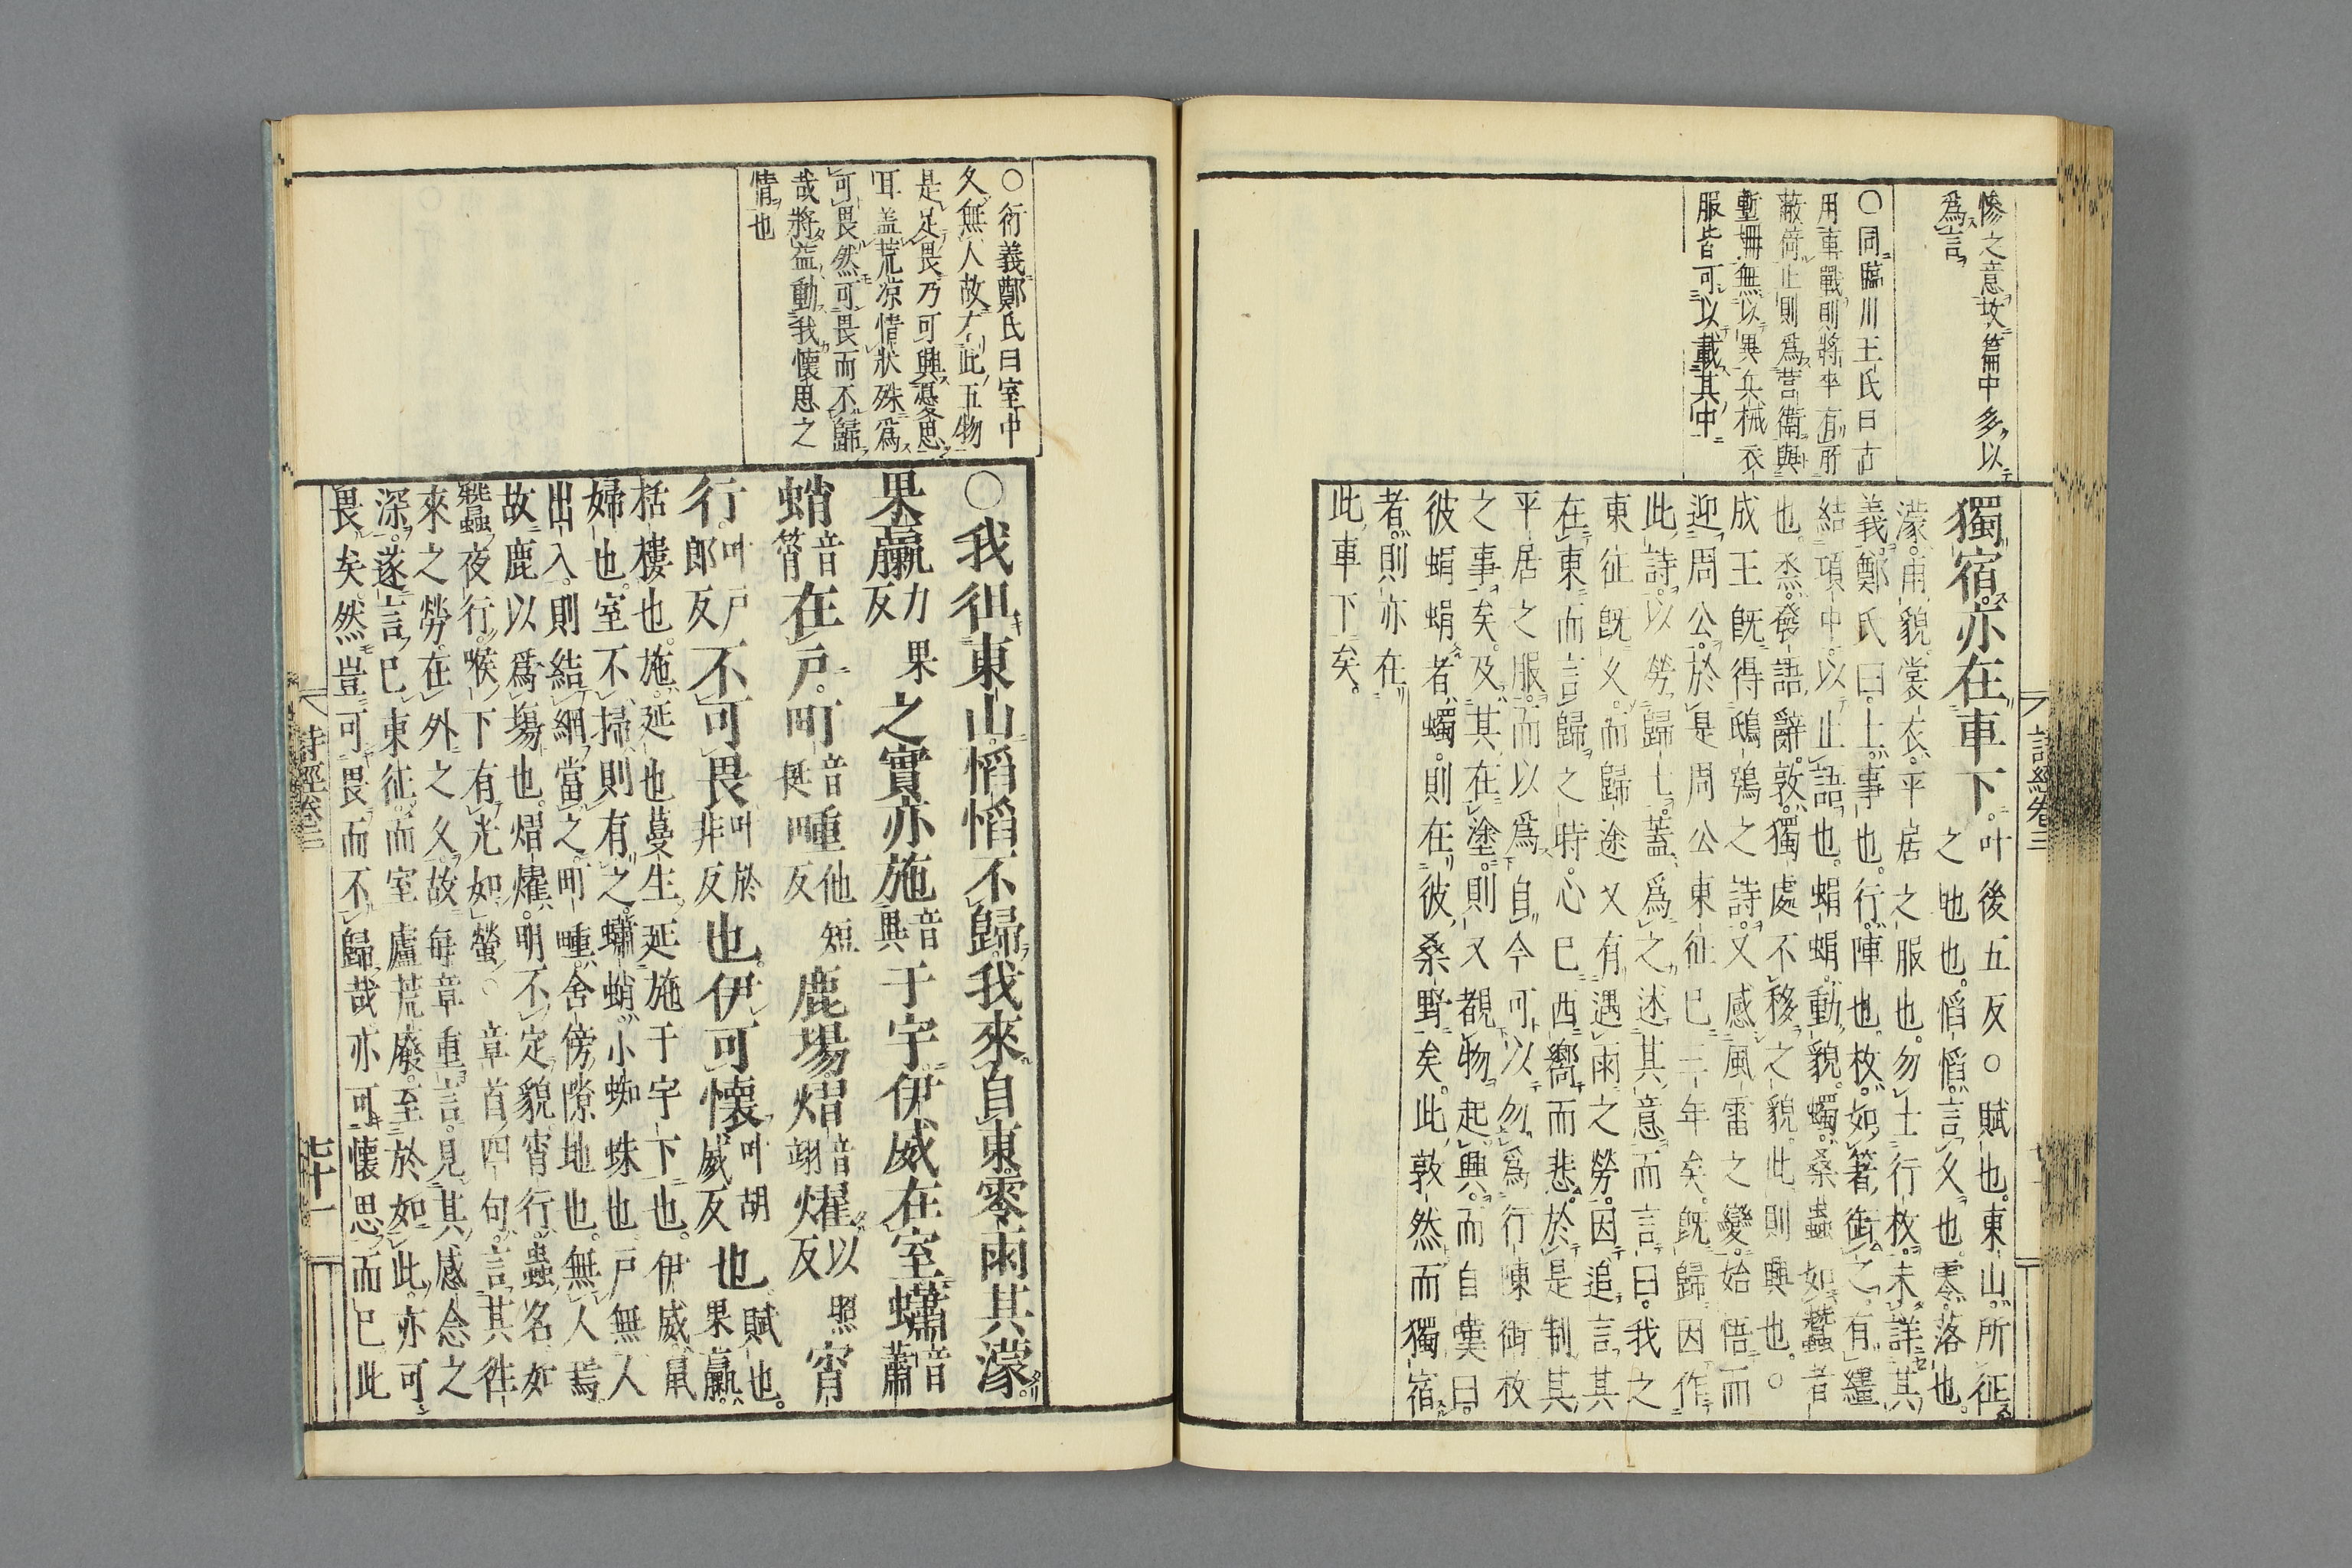 慘之意故篇中多以
爲言
○同臨川王氏曰古
用車戰則將卒有所
蔽倚止則爲營衛與
塹柵無以異兵械衣
服皆可以載其中
獨宿亦在車下叶後五反○賦也東山所征
之地也慆慆言久也零落也
濛雨貌裳衣平居之服也勿士行枚未詳其
義鄭氏曰士事也行陣也枚如箸銜之有繣
結項中以止語也蜎蜎動貌蠋桑蟲如蠶音
也烝發語辭敦獨處不移之貌此則興也○
成王既得鴟鴞之詩又感風雷之變始悟而
迎周公於是周公東征已三年矣既歸因作
此詩以勞歸士蓋爲之述其意而言曰我之
東征既久而歸途又有遇雨之勞因追言其
在東而言歸之時心已西嚮而悲於是制其
平居之服而以爲自今可以勿爲行陳銜枚
之事矣及其在塗則又覩物起興而自嘆曰
彼蜎蜎者蠋則在彼桑野矣此敦然而獨宿
者則亦在
此車下矣
詩經卷三
○衍義鄭氏曰室中
久無人故才此五物
是足畏乃可興憂思
耳蓋荒凉情狀殊爲
可畏然可畏而不歸
哉將益動我懷思之
情也
○我徂東山慆慆不歸我來自東零雨其濛
果臝力果反之實亦施音異于宇伊威在室蠨音蕭
蛸音筲在戶町音挺畽他短反鹿場熠音翊燿以照反宵
行叶戶郎反不可畏叶於非反也伊可懷叶胡威反也賦也果臝
栝樓也施延也蔓生延施于宇下也伊威鼠
婦也室不掃則有之蠨蛸小蜘蛛也戶無人
出入則結網當之町畽舍傍隙地也無人焉
故鹿以爲場也熠燿明不定貌宵行蟲名如
蠶夜行喉下有光如螢○章首四句言其往
來之勞在外之久故每章重言見其感念之
深遂言已東征而室廬荒廢至於如此亦可
畏矣然豈可畏而不歸哉亦可懷思而已此
詩經卷三
七十一